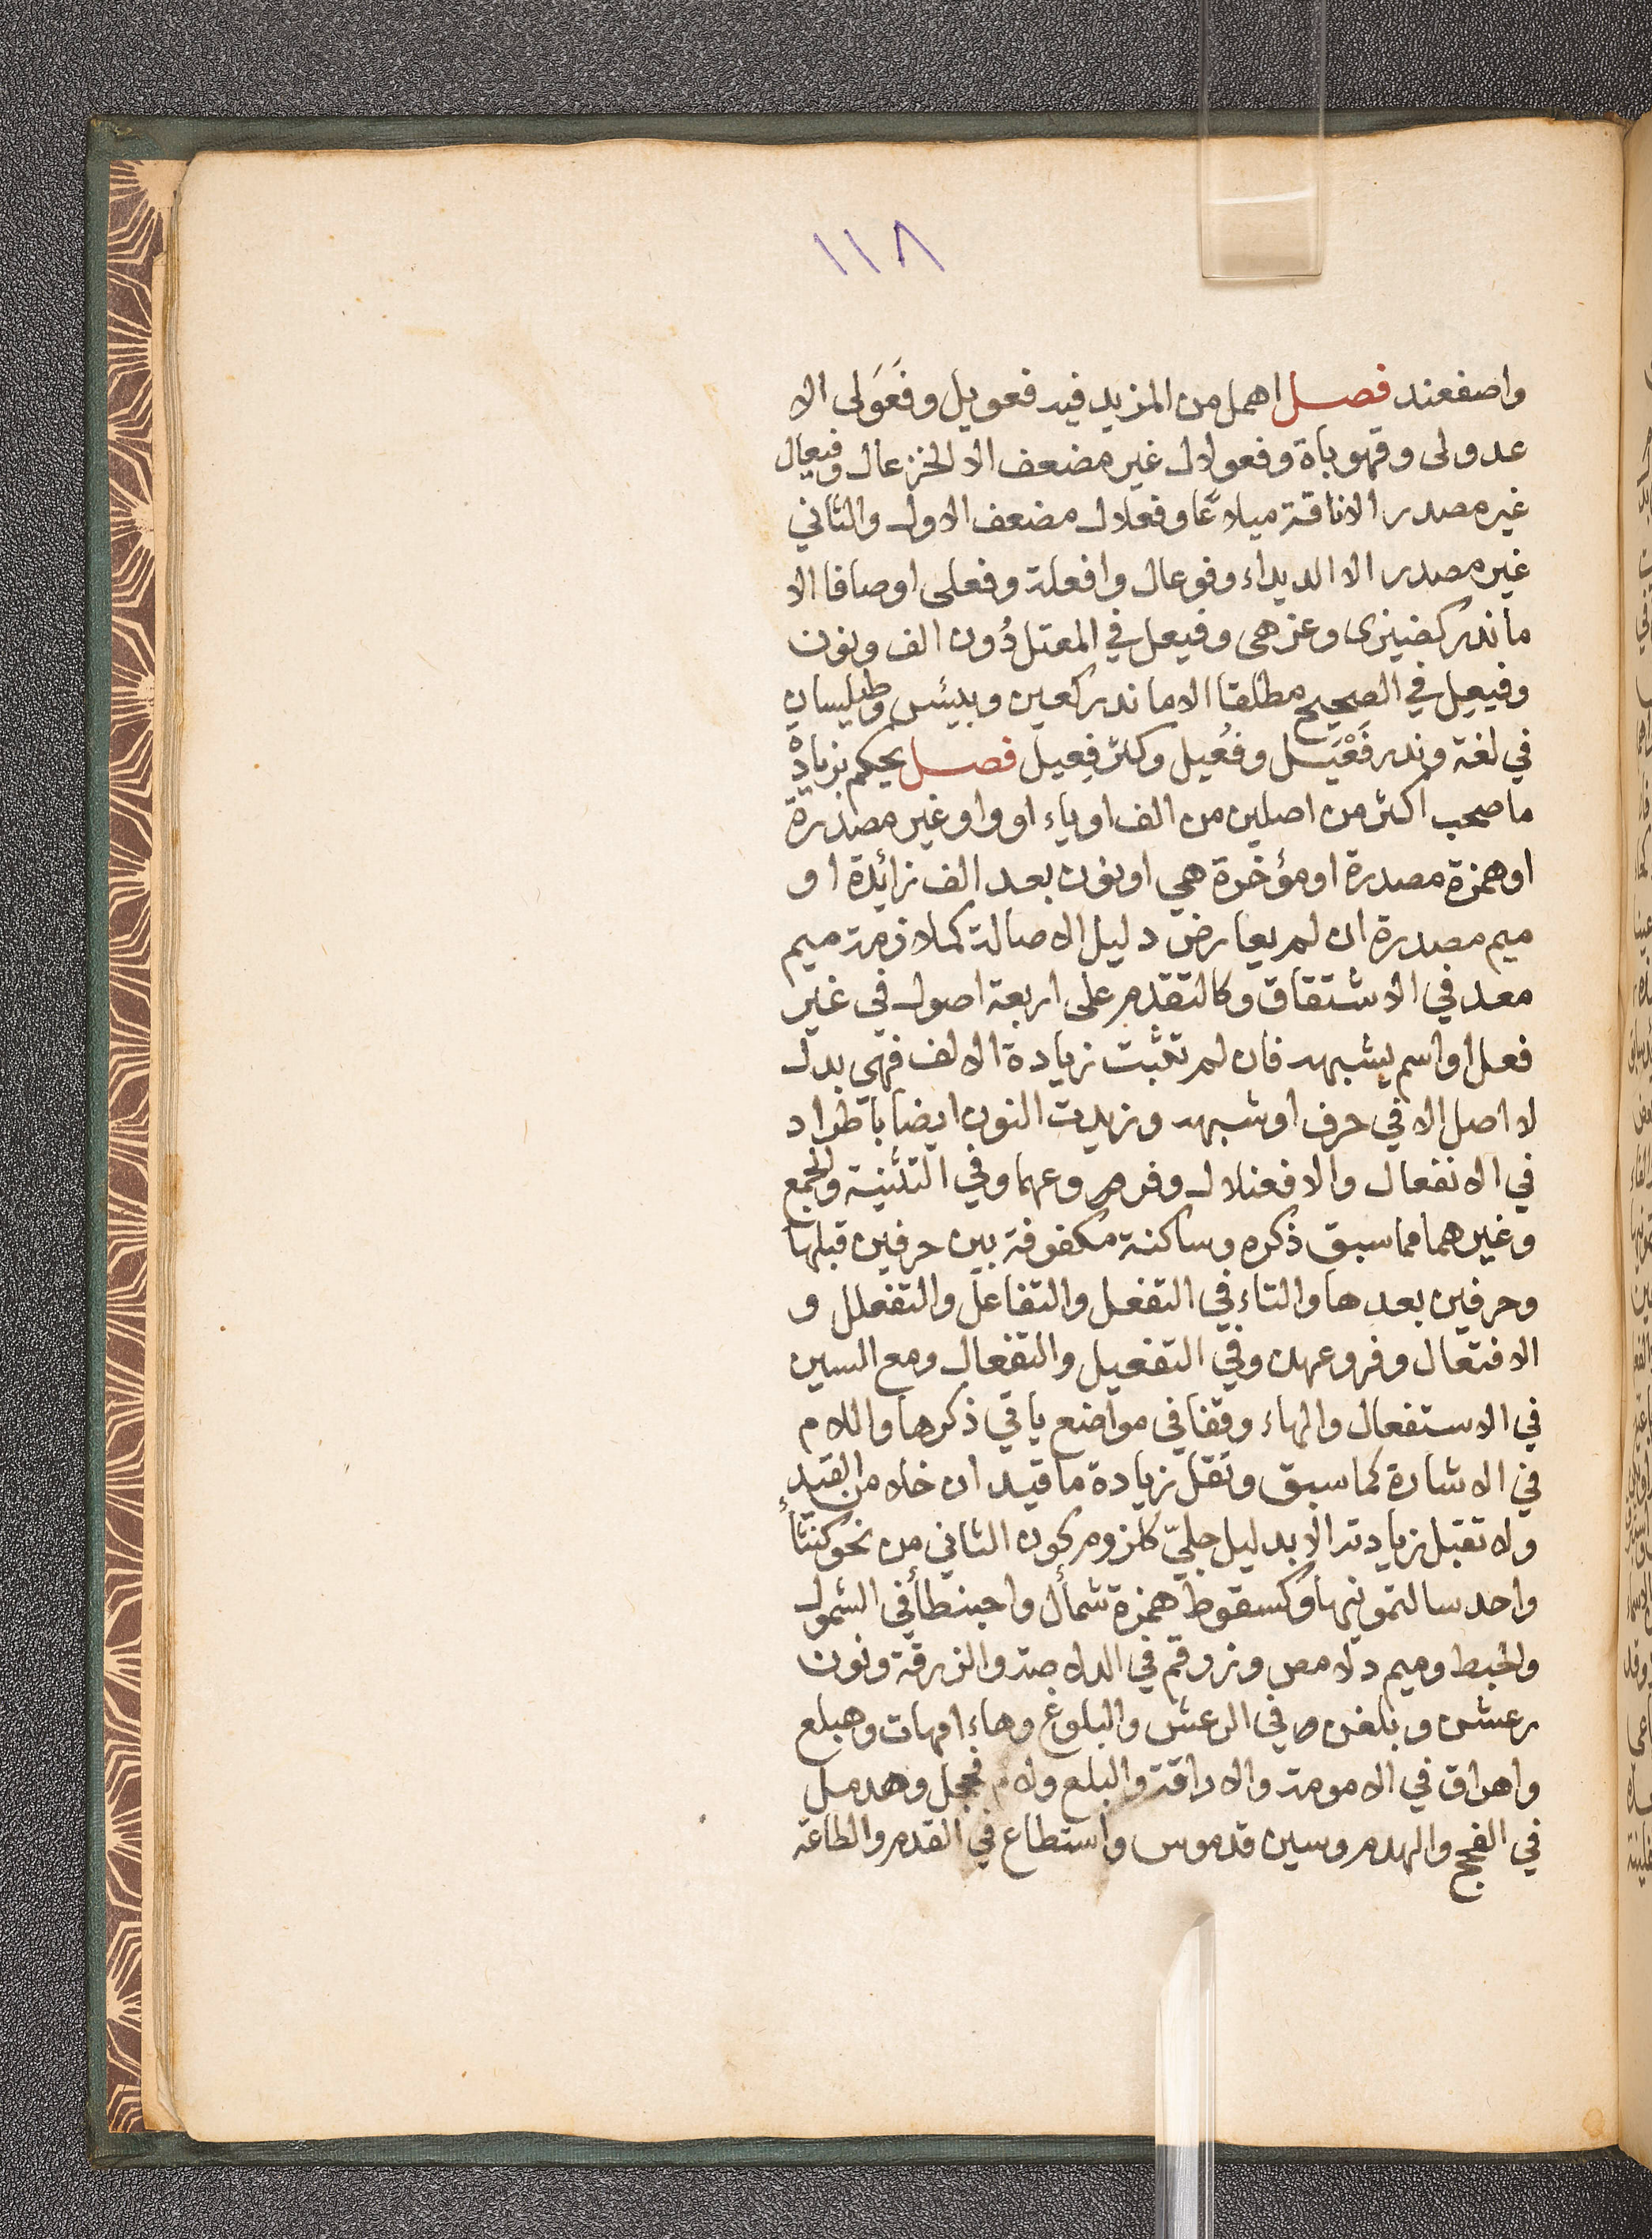 ١١٨
واصفعند فصل اهمل من المزيد فيه فعويل وفَعَوَلى الا
عدولى وقهوباة وفعولال غير مضعف الا لخزعال وفيعال
غير مصدر الا ناقة ميلاعًا وفعلال مضعف الاول والثاني
غير مصدر الا الديداء وفوعال وافعلة وفعلى اوصافا الا
ما ندر كضيزى وعزهى وفيعل في المعتل دُون الف ونون
وفيعِل في الصحيح مطلقا الا ما ندر كعين وبيئس وطيلسان
في لغة وندر فَعْيَل وفعُيل وكثر فِعيل فصل يحكم بزيادة
ما صحب اكثر من اصلين من الف او ياء او واو غير مصدرة
او همزة مصدرة او مؤخرة هي او نون بعد الف زائدة او
ميم مصدرة ان لم يعارض دليل الاصالة كملازمة ميم
معد في الاشتقاق وكالتقدم على اربعة اصول في غير
فعل او اسم يشبهه فان لم تثبت زيادة الالف فهي بدل
لا اصل الا في حرف او شبهه وزيدت النون ايضا باطراد
في الانفعال والافعنلال وفروعهما وفي التثنية والجمع
وغيرهما مما سبق ذكره وساكنة مكفوفة بين حرفين قبلها
وحرفين بعدها والتاء في التفعل والتفاعل والتفعلل و
الافتعال وفروعهن وفي التفعيل والتفعال ومع السين
في الاستفعال والهاء وقفا في مواضع ياتي ذكرها واللام
في الاشارة كما سبق وتقل زيادة ما قيد ان خلا من القيد
ولا تقبل زيادته الا بدليل جليّ كلزوم كون الثاني من نحو كنتأ
واحد سالتمونيها وكسقوط همزة شمأل واحبنطأ في الشمول
والحبط وميم دلامص وزرقم في الدلاصة والزرقة ونون
رعشن وبلغن في الرعش والبلوغ وهاء امهات وهبلع
واهراق في الامومة والاراقة والبلع ولام فحجل وهدمل
في الفحج والهدم وسين قدموس واستطاع في القدم والطاعة